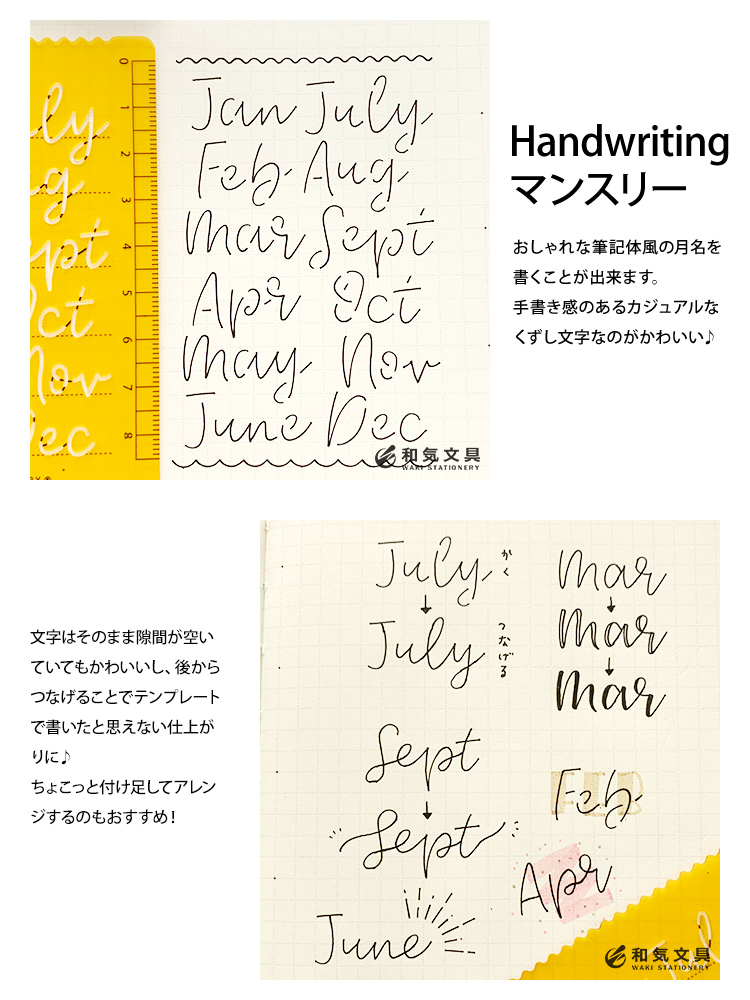 Handwriting
マンスリー
おしゃれな筆記体風の月名を
書くことが出来ます。
手書き感のあるカジュアルな
くずし文字なのがかわいい♪
0
1
2
3
4
5
6
7
8
uly
ug
ept
ct
Nov
ec
Jan July
Feb Aug
Mar Sept
Apr Oct
May Nov
June Dec
和気文具
WAKI STATIONERY
文字はそのまま隙間が空い
ていてもかわいいし、後から
つなげることでテンプレート
で書いたと思えない仕上が
りに♪
ちょこっと付け足してアレン
ジするのもおすすめ！
July かく
↓
July つなげる
Sept
↓
Sept
June
Mar
↓
Mar
↓
Mar
Feb
Apr
和気文具
WAKI STATIONERY